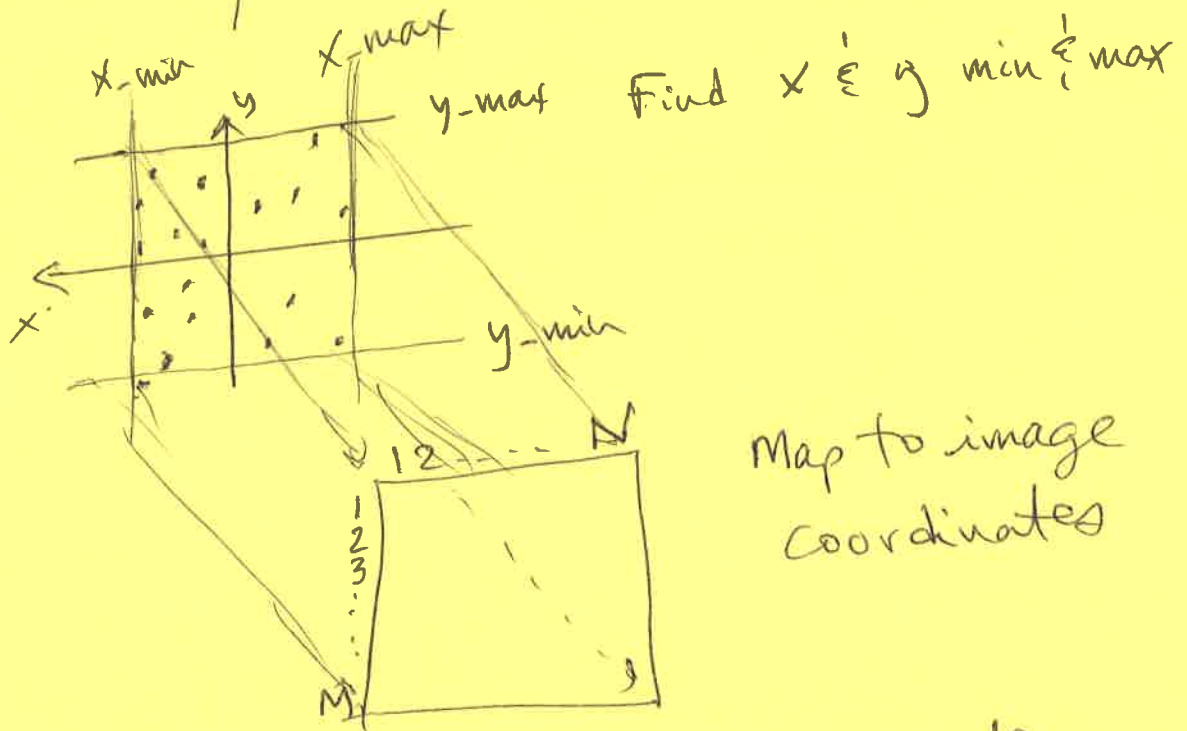 x_min
x_max
y
y_max
Find x & y min & max
x
y_min
1 2 - - - - N
1
2
3
.
.
.
M
Map to image
coordinates